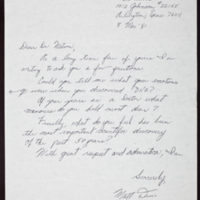 Arlington, Texas 760
8 Mar 81
Dear Dr. Nelson,
As a long time fan of yours I am
writing to ask you a few questions.
Could you tell me what your emotions
were when you discovered "DNA"?
If you were as a Doctor what
memories do you hold most dear?
Finally, what do you feel has been
the most important scientific discovery
of the past 50 years?
With great respect and admiration, I am
Sincerely,
Matt